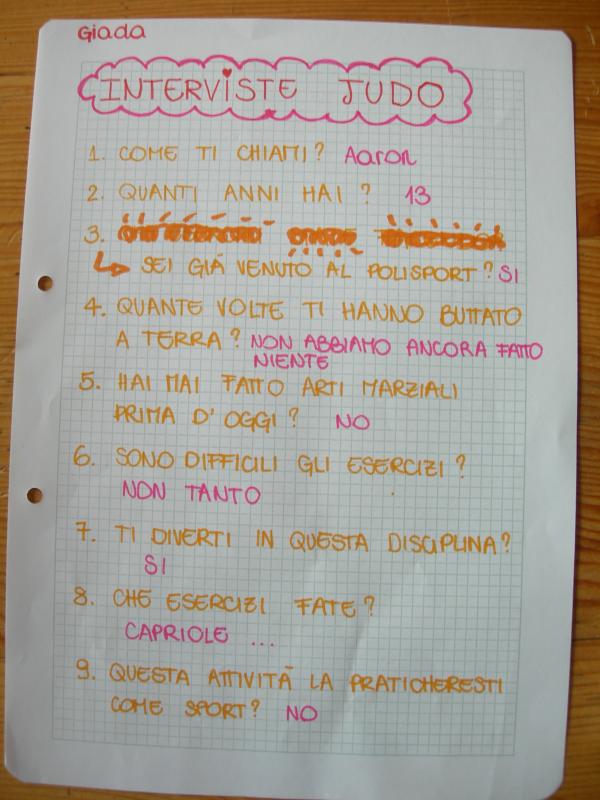 Giada
INTERVISTE JUDO
1. COME TI CHIAMI? Aaron
2. QUANTI ANNI HAI? 13
3.
SEI GIÀ VENUTO AL POLISPORT? SI
4. QUANTE VOLTE TI HANNO BUTTATO
A TERRA? NON ABBIAMO ANCORA FATTO
NIENTE
5. HAI MAI FATTO ARTI MARZIALI
PRIMA D'OGGI? NO
6. SONO DIFFICILI GLI ESERCIZI?
NON TANTO
7. TI DIVERTI IN QUESTA DISCIPLINA?
SI
8. CHE ESERCIZI FATE?
CAPRIOLE ...
9. QUESTA ATTIVITÀ LA PRATICHERESTI
COME SPORT? NO